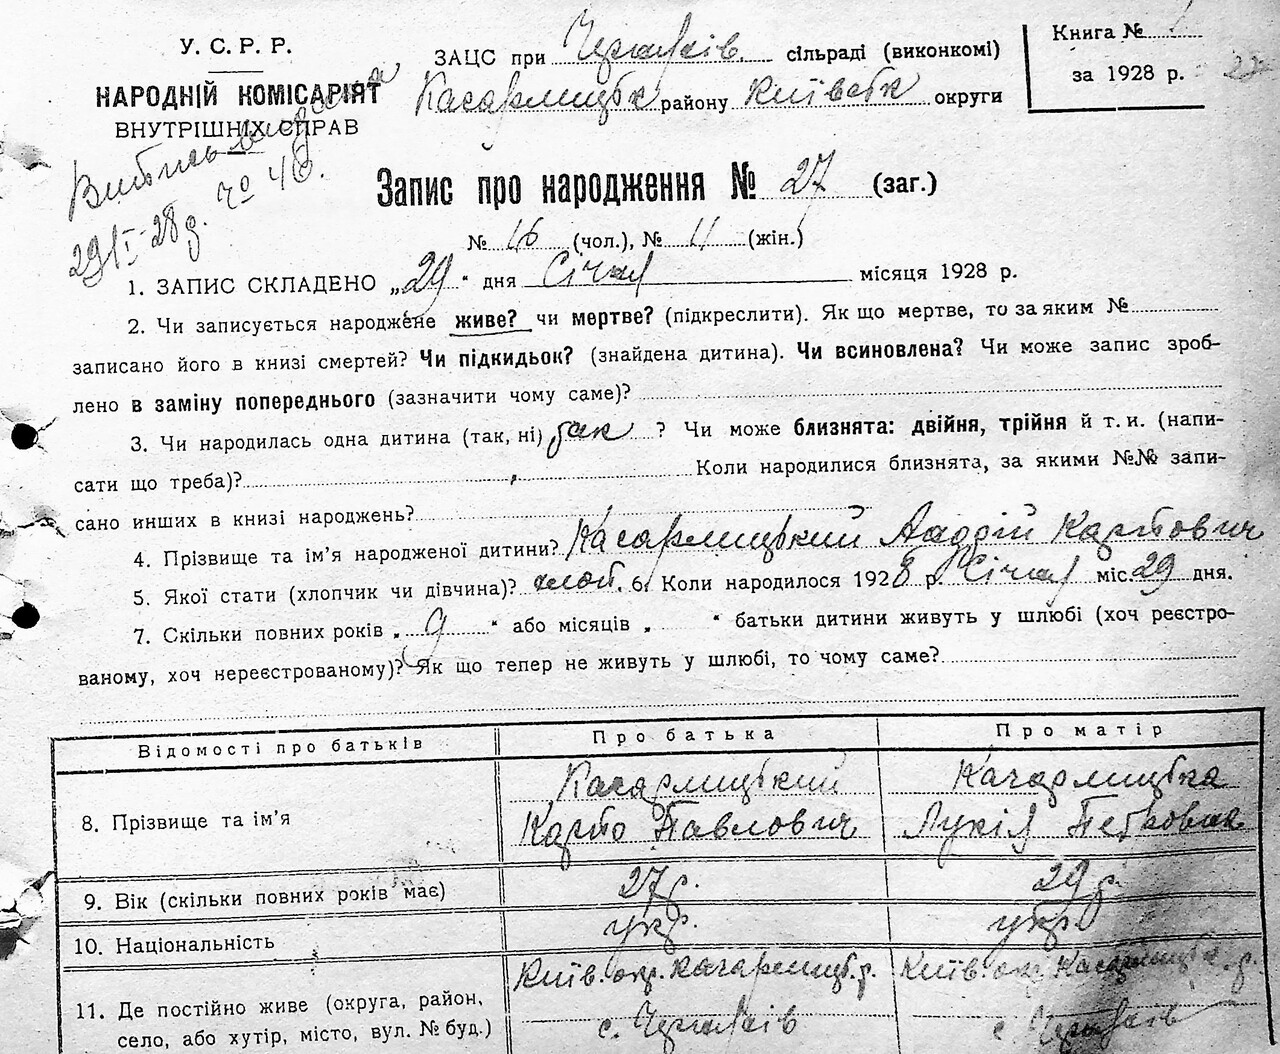 У. С. Р. Р.
НАРОДНІЙ КОМІСАРІЯТ
ВНУТРІШНІХ СПРАВ
Витись видана
29/I-28 р. ч° 46.
ЗАЦС при сільраді (виконкомі)
Кагарлицьк району Київськ округи
Книга №
за 1928 р.
Запис про народження № 27 (заг.)
№ 16 (чол.), № 11 (жін.)
1. ЗАПИС СКЛАДЕНО „29“ дня Січня місяця 1928 р.
2. Чи записується народжене живе? чи мертве? (підкреслити). Як що мертве, то за яким №
записано його в книзі смертей? Чи підкидьок? (знайдена дитина). Чи всиновлена? Чи може запис зроб-
лено в заміну попереднього (зазначити чому саме)?
3. Чи народилась одна дитина (так, ні) так ? Чи може близнята: двійня, трійня й т. и. (напи-
сати що треба)? Коли народилися близнята, за якими №№ запи-
сано инших в книзі народжень?
4. Прізвище та ім’я народженої дитини? Кагарлицький Андрій Карпович
5. Якої стати (хлопчик чи дівчина)? хлоп. 6. Коли народилося 1928 р. Січня міс. 29 дня.
7. Скільки повних років „ 9 “ або місяців „ “ батьки дитини живуть у шлюбі (хоч реєстро-
ваному, хоч нереєстрованому)? Як що тепер не живуть у шлюбі, то чому саме?
Відомості про батьків Про батька Про матір
8. Прізвище та ім’я Кагарлицький Карпо Павлович Кагарлицька Лукія Петровна
9. Вік (скільки повних років має) 27 р. 29 р.
10. Національність укр. укр.
11. Де постійно живе (округа, район, Київ. окр. Кагарлицьк. р. Київ. окр. Кагарлицьк. р.
село, або хутір, місто, вул. № буд.) с. с.